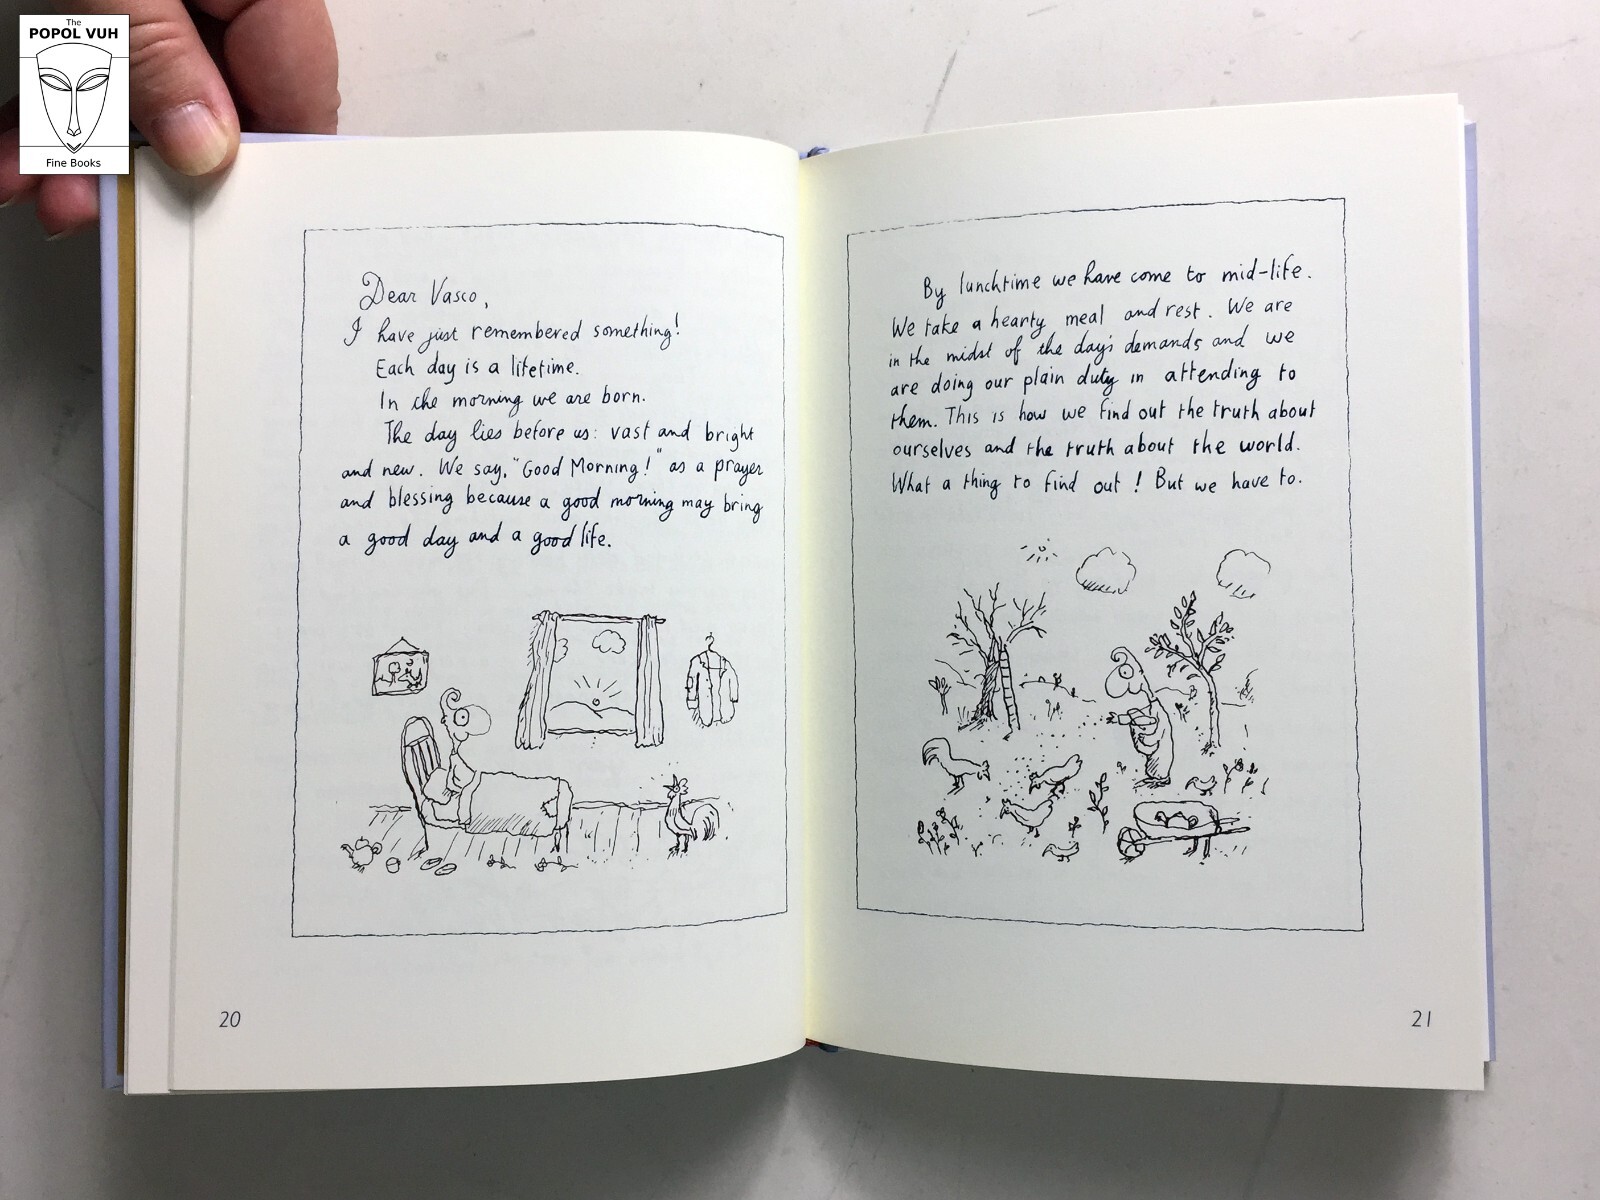 The
POPOL VUH
Fine Books
Dear Vasco,
I have just remembered something!
Each day is a lifetime.
In the morning we are born.
The day lies before us: vast and bright
and new. We say, "Good Morning!" as a prayer
and blessing because a good morning may bring
a good day and a good life.
20
By lunchtime we have come to mid-life.
We take a hearty meal and rest. We are
in the midst of the day's demands and we
are doing our plain duty in attending to
them. This is how we find out the truth about
ourselves and the truth about the world.
What a thing to find out! But we have to.
21